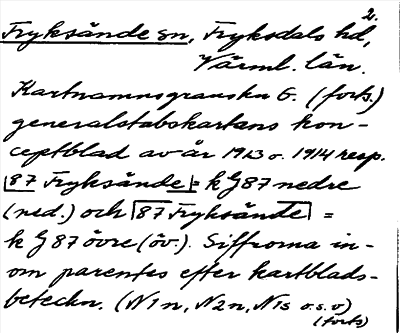 2.
Fryksände sn, Fryksdals hd,
Värml. län.
Kartnamnsgranskn G. (forts.)
generalstabskartans kon-
ceptblad av år 1913 o. 1914 resp.
|87 Fryksände| = k G 87 nedre
(ned.) och |87 Fryksände| =
k G 87 övre (öv.). Siffrorna in-
om parentes efter kartblads-
beteckn. (N1n, N2n, N1s o.s.v)
(forts)